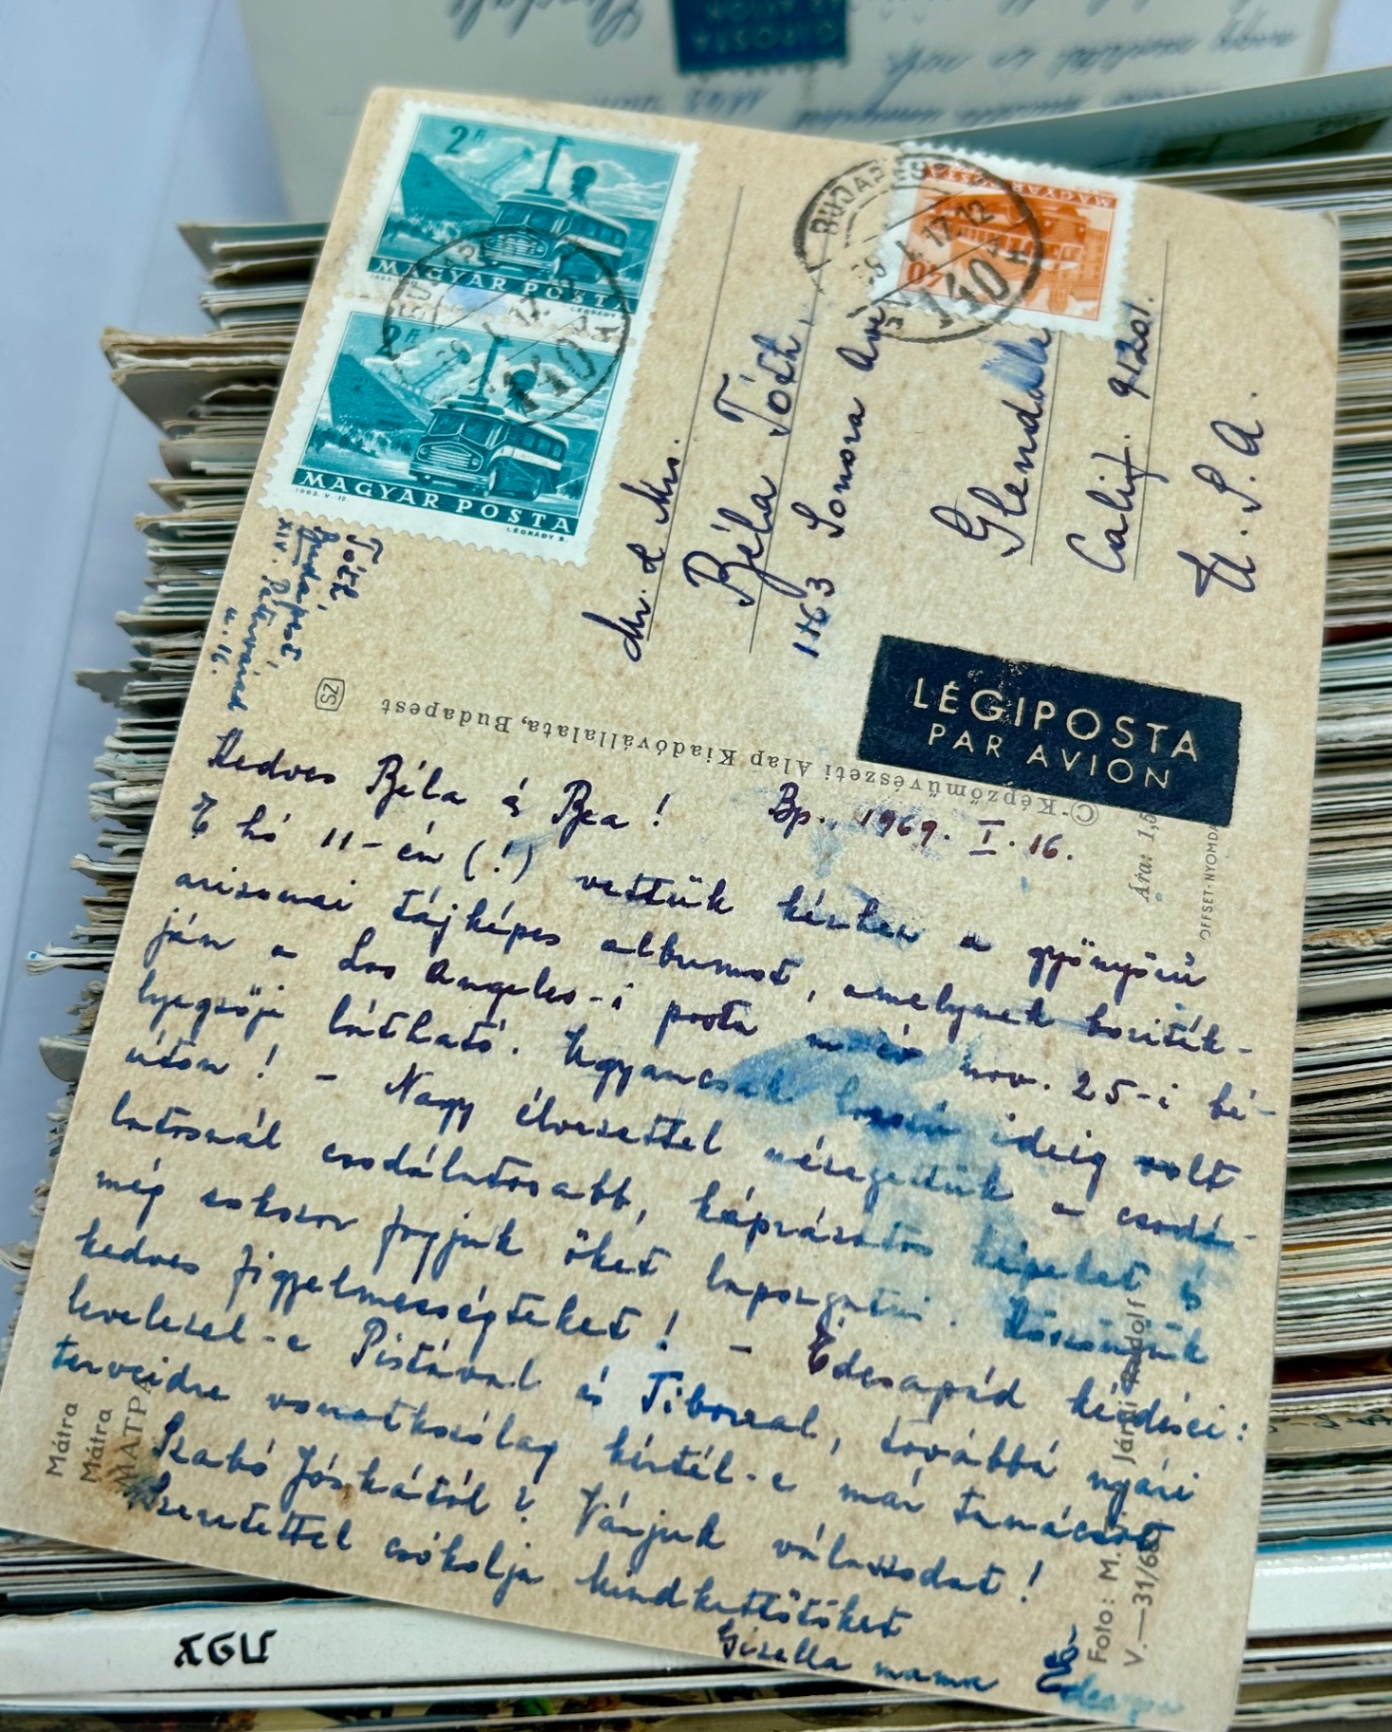 2 ft
MAGYAR POSTA
LÉGRÁDY S.
2 ft
MAGYAR POSTA
1963. V. 12.
LÉGRÁDY S.
BUDAPEST
17.12
140
MAGYAR POSTA
40
Mr. & Mrs.
Béla Tóth,
1163 Sonora Ave
Glendale
Calif. 91201.
U.S.A.
LÉGIPOSTA
PAR AVION
Tóth,
Budapest,
XIV.
u. 16.
ZS
© Képzőművészeti Alap Kiadóvállalata, Budapest
Ára: 1,
OFFSET-NYOMDA
Bp., 1969. I. 16.
Kedves Béla és Bea!
E hó 11-én (!) vettük kézhez a gyönyörű
arizonai tájképes albumot, amelynek boríték-
ján a Los Angeles-i posta nov. 25-i bé-
lyegzője látható. Ugyancsak hosszú ideig volt
úton! - Nagy élvezettel nézegettük a csodá-
latosnál csodálatosabb, káprázatos képeket s
még sokszor fogjuk őket lapozgatni. Köszönjük
kedves figyelmességteket! - Édesapád kérdései:
levelezel-e Pistával és Tiborral, továbbá nyári
terveidre vonatkozólag kértél-e már tanácsot
Szabó Jóskától? Várjuk válaszodat!
Szeretettel csókolja mindkettőtöket
Gizella mama és
Édesapa
Mátra
Mátra
МАТРА
Foto: M. Járai Rudolf
V.—31/68